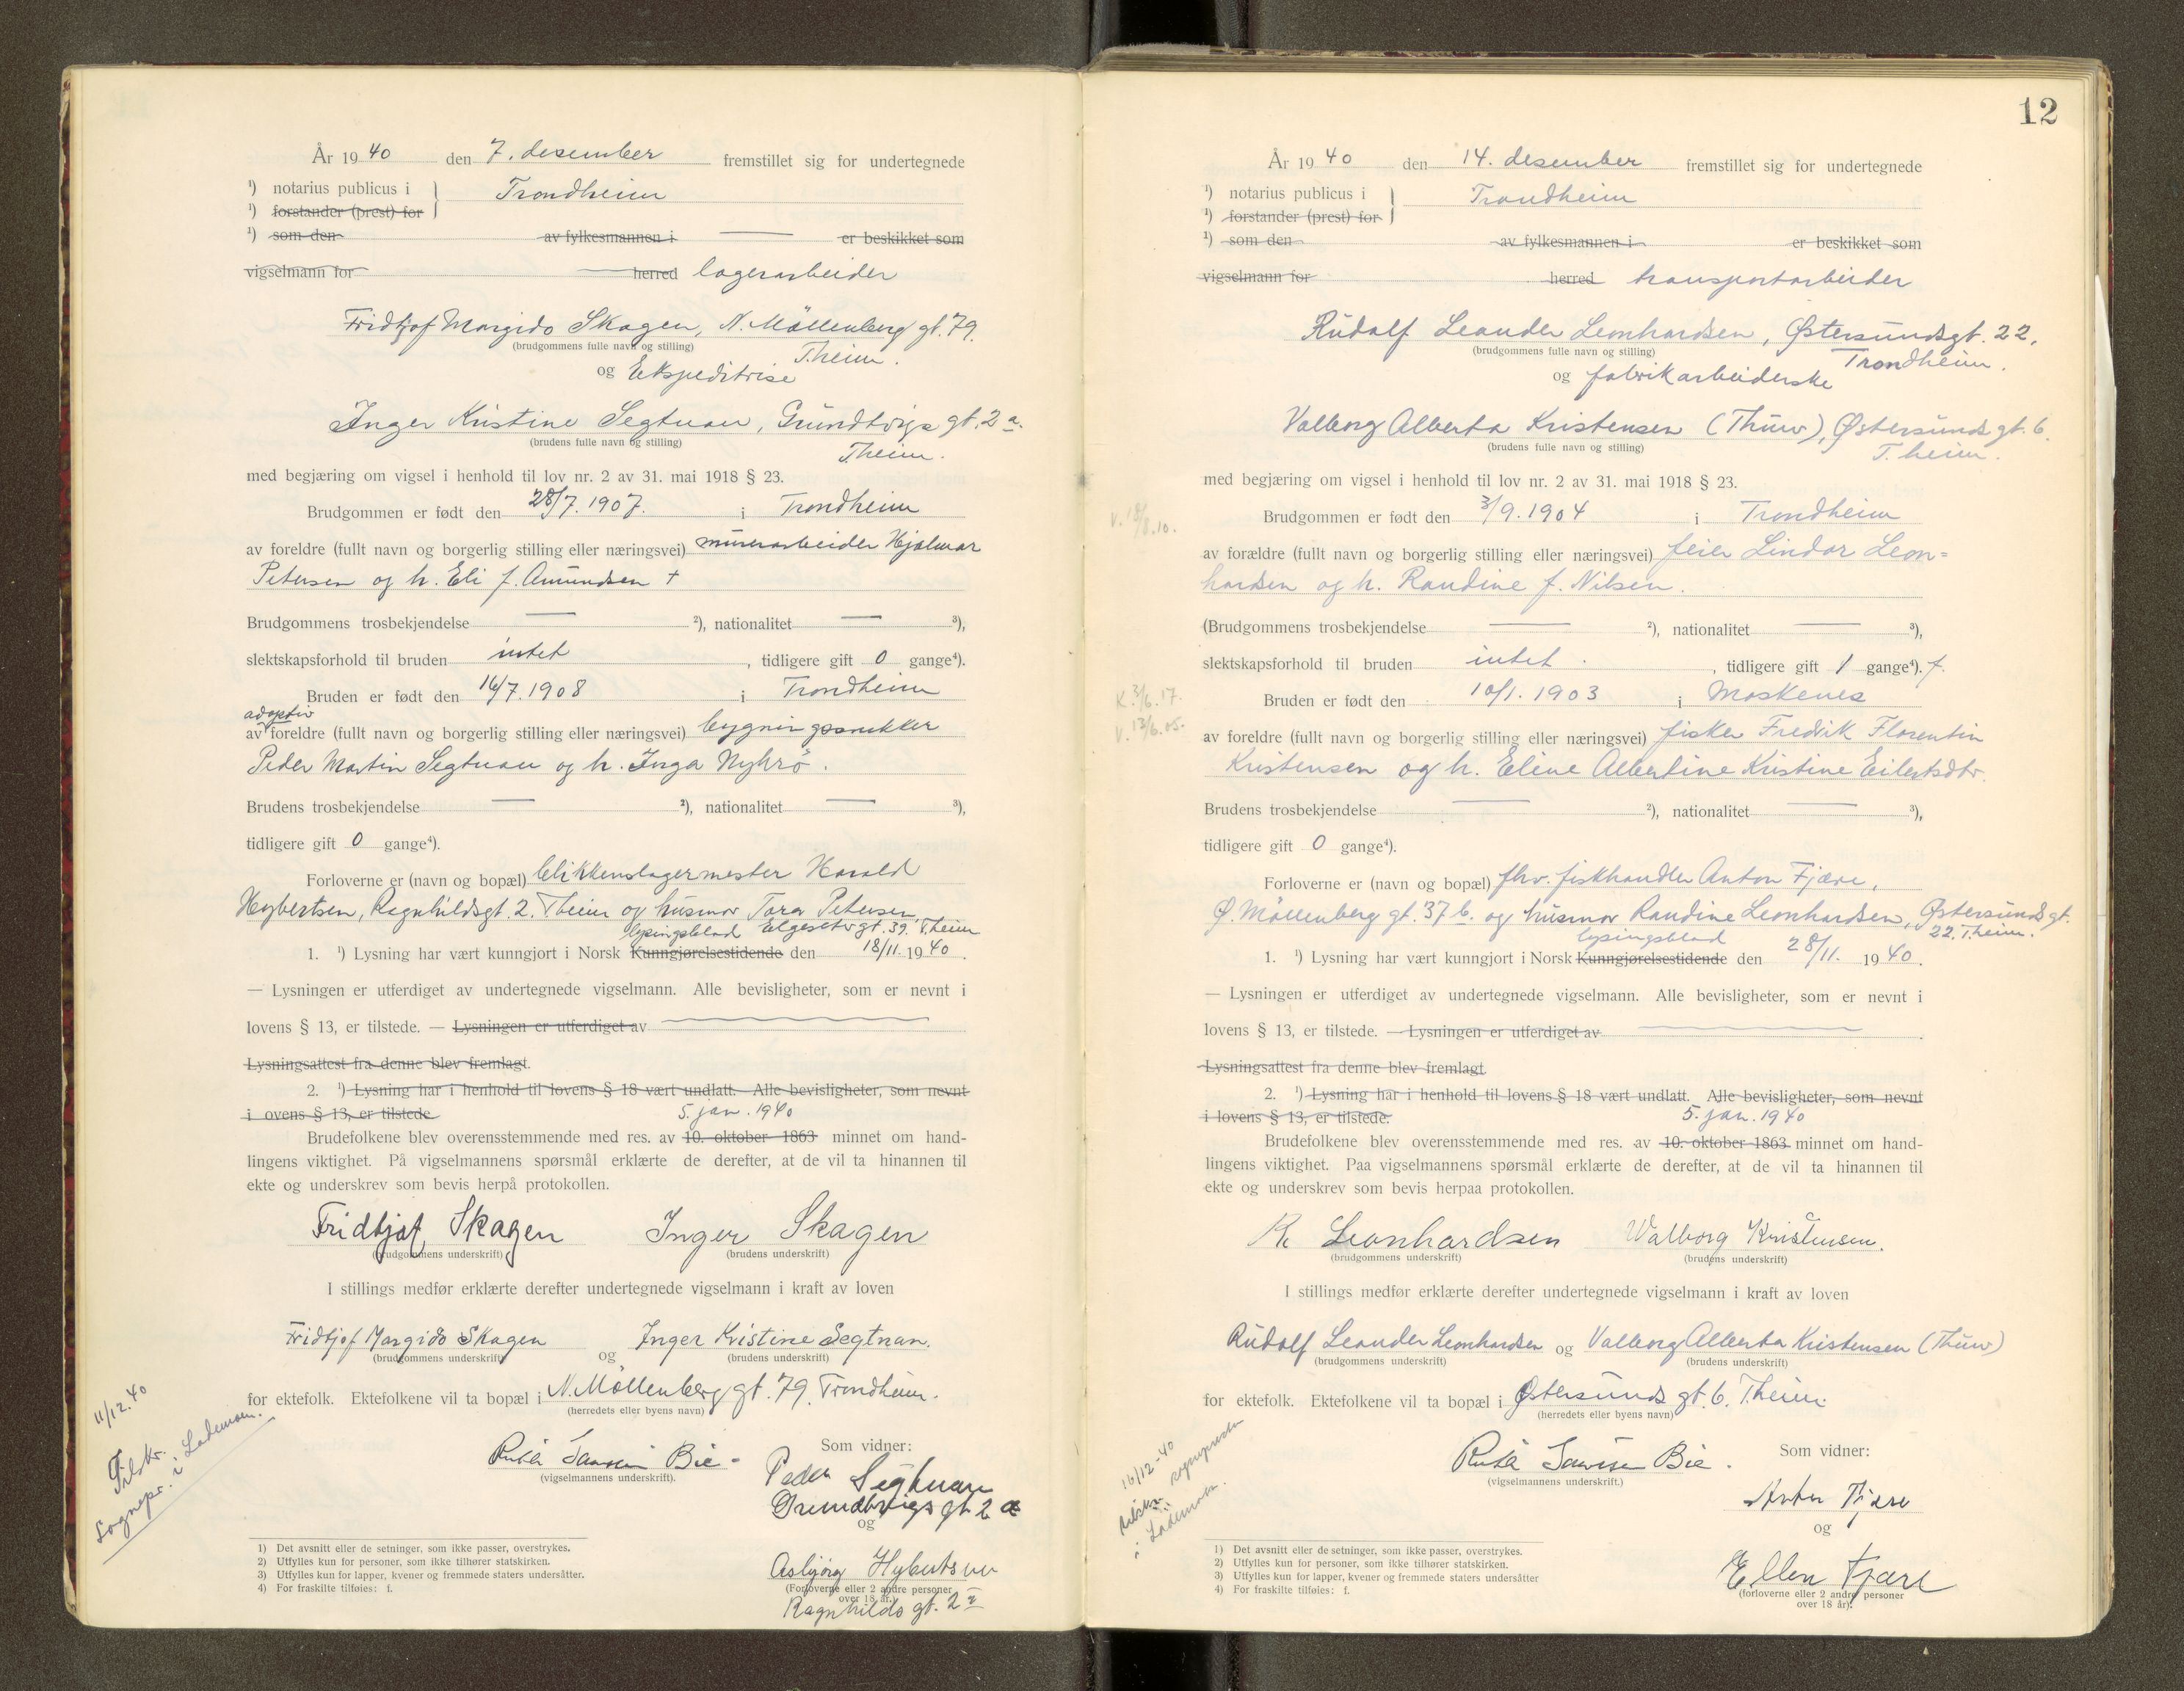 År 1940 den 7. desember fremstillet sig for undertegnede
¹) notarius publicus i } Trondheim
¹) forstander (prest) for
¹) som den av fylkesmannen i er beskikket som
vigselmann for herred lagerarbeider
Fridtjof Margido Skagen, N. Möllenberg gt. 79.
(brudgommens fulle navn og stilling) T.heim.
og Ekspeditrise
Inger Kristine Segtnan, Grundtvigs gt. 2 a.
(brudens fulle navn og stilling) T.heim.
med begjæring om vigsel i henhold til lov nr. 2 av 31. mai 1918 § 23.
Brudgommen er født den 28/7. 1907. i Trondheim
av foreldre (fullt navn og borgerlig stilling eller næringsvei) murerarbeider Hjalmar
Petersen og h. Eli f. Amundsen +
Brudgommens trosbekjendelse — ²), nationalitet — ³),
slektskapsforhold til bruden intet, tidligere gift 0 gange⁴).
Bruden er født den 16/7. 1908 i Trondheim
adoptiv
av foreldre (fullt navn og borgerlig stilling eller næringsvei) bygningssnekker
Peder Martin Segtnan og h. Inga Nyhrö.
Brudens trosbekjendelse — ²), nationalitet — ³),
tidligere gift 0 gange⁴).
Forloverne er (navn og bopæl) blikkenslagermester Harald
Hybertsen, Ragnhildsgt. 2. T.heim og husmor Tora Petersen,
lysingsblad Elgesetergt. 39. T.heim
1. ¹) Lysning har vært kunngjort i Norsk Kunngjørelsestidende den 18/11. 1940.
— Lysningen er utferdiget av undertegnede vigselmann. Alle bevisligheter, som er nevnt i
lovens § 13, er tilstede. — Lysningen er utferdiget av
Lysningsattest fra denne blev fremlagt.
2. ¹) Lysning har i henhold til lovens § 18 vært undlatt. Alle bevisligheter, som nevnt
i ovens § 13, er tilstede 5. jan. 1940
Brudefolkene blev overensstemmende med res. av 10. oktober 1863 minnet om hand-
lingens viktighet. På vigselmannens spørsmål erklærte de derefter, at de vil ta hinannen til
ekte og underskrev som bevis herpå protokollen.
Fridtjof Skagen Inger Skagen
(brudgommens underskrift) (brudens underskrift)
I stillings medfør erklærte derefter undertegnede vigselmann i kraft av loven
Fridtjof Margido Skagen og Inger Kristine Segtnan.
(brudgommens underskrift) (brudens underskrift)
for ektefolk. Ektefolkene vil ta bopæl i N. Möllenberg gt. 79. Trondheim.
(herredets eller byens navn)
11/12.40
Tilskr.
sognepr. i Lademoen.
Bie.
(vigselmannens underskrift).
Som vidner:
Peder Segtnan
Grundtvigs gt 2 a
og
Asbjørg Hybertsen
(Forloverne eller 2 andre personer
over 18 år.)
Ragnhilds gt. 2
1) Det avsnitt eller de setninger, som ikke passer, overstrykes.
2) Utfylles kun for personer, som ikke tilhører statskirken.
3) Utfylles kun for lapper, kvener og fremmede staters undersåtter.
4) For fraskilte tilføies: f.
12
År 1940 den 14. desember fremstillet sig for undertegnede
¹) notarius publicus i } Trondheim
¹) forstander (prest) for
¹) som den av fylkesmannen i er beskikket som
vigselmann for herred transportarbeider
Rudolf Leander Leonhardsen, Østersundsgt. 22,
(brudgommens fulle navn og stilling) Trondheim.
og fabrikarbeiderske
Valborg Alberta Kristensen (Thuw), Østersunds gt. 6.
(brudens fulle navn og stilling) T.heim.
med begjæring om vigsel i henhold til lov nr. 2 av 31. mai 1918 § 23.
Brudgommen er født den 3/9. 1904 i Trondheim
av forældre (fullt navn og borgerlig stilling eller næringsvei) feier Lindor Leon=
hardsen og h. Randine f. Nilsen.
(Brudgommens trosbekjendelse — ²), nationalitet — ³),
slektskapsforhold til bruden intet. , tidligere gift 1 gange⁴). f.
K. 3/6. 17.
Bruden er født den 10/1. 1903 i Moskenes
V. 13/6. 05.
av foreldre (fullt navn og borgerlig stilling eller næringsvei) fisker Fredrik Florentin
Kristensen og h. Eline Albertine Kristine Eilertsdtr.
Brudens trosbekjendelse — ²), nationalitet — ³),
tidligere gift 0 gange⁴).
Forloverne er (navn og bopæl) fhv. fiskhandler Anton Fjære,
Ø. Möllenberg gt. 37 b. og husmor Randine Leonhardsen, Østersunds gt.
lysingsblad 22. T.heim.
1. ¹) Lysning har vært kunngjort i Norsk Kunngjørelsestidende den 28/11. 1940.
— Lysningen er utferdiget av undertegnede vigselmann. Alle bevisligheter, som er nevnt i
lovens § 13, er tilstede. — Lysningen er utferdiget av
Lysningsattest fra denne blev fremlagt
2. ¹) Lysning har i henhold til lovens § 18 vært undlatt. Alle bevisligheter, som nevnt
i lovens § 13, er tilstede. 5. jan. 1940
Brudefolkene blev overensstemmende med res. av 10. oktober 1863 minnet om hand-
lingens viktighet. Paa vigselmannens spørsmål erklærte de derefter, at de vil ta hinannen til
ekte og underskrev som bevis herpaa protokollen.
R. Leonhardsen Walborg Kristensen.
(brudgommens underskrift) (brudens underskrift)
I stillings medfør erklærte derefter undertegnede vigselmann i kraft av loven
Rudolf Leander Leonhardsen og Valborg Alberta Kristensen (Thuw)
(brudgommens underskrift) (brudens underskrift)
for ektefolk. Ektefolkene vil ta bopæl i Østersunds gt. 6. T.heim.
(herredets eller byens navn)
16/12-40
sognepresten
i Lademoen.
Bie.
(vigselmannens underskrift.)
Som vidner:
Anton Fjære
og
Ellen Fjære
(forloverne eller 2 andre personer
over 18 år).
1) Det avsnitt eller de setninger, som ikke passer, overstrykes.
2) Utfylles kun for personer, som ikke tilhører statskirken.
3) Utfylles kun for lapper, kvener og fremmede staters undersåtter
4) For fraskilte tilføies: f.